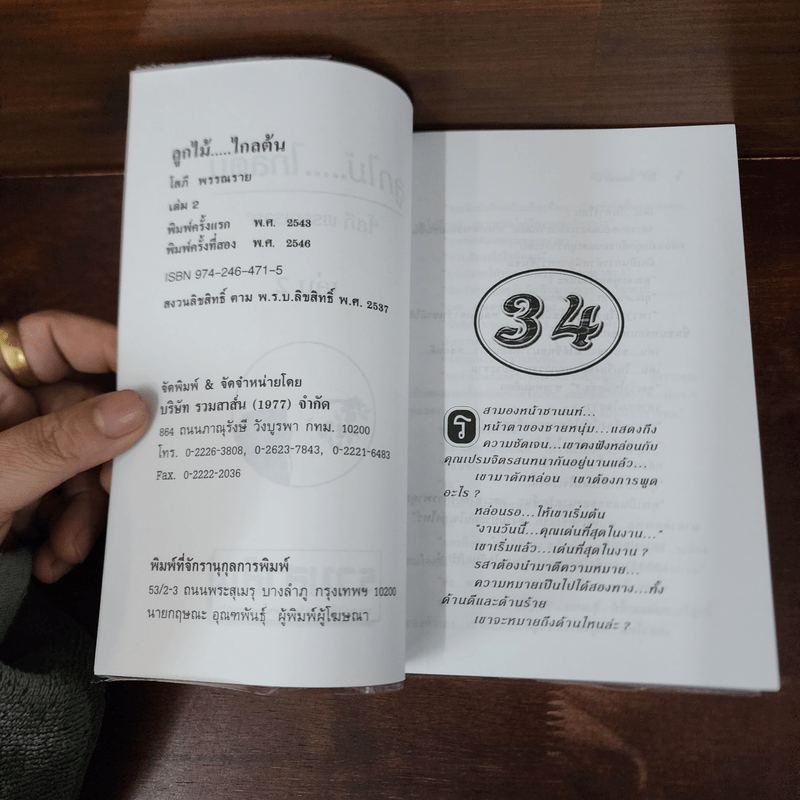 ลูกไม้.....ไกลต้น
โสภี พรรณราย
เล่ม 2
พิมพ์ครั้งแรก พ.ศ. 2543
พิมพ์ครั้งที่สอง พ.ศ. 2546
ISBN 974-246-471-5
สงวนลิขสิทธิ์ ตาม พ.ร.บ.ลิขสิทธิ์ พ.ศ. 2537
จัดพิมพ์ & จัดจำหน่ายโดย
บริษัท รวมสาส์น (1977) จำกัด
864 ถนนภาณุรังษี วังบูรพา กทม. 10200
โทร. 0-2226-3808, 0-2623-7843, 0-2221-6483
Fax. 0-2222-2036
พิมพ์ที่จักรานุกูลการพิมพ์
53/2-3 ถนนพระสุเมรุ บางลำภู กรุงเทพฯ 10200
นายกฤษณะ อุณฑพันธุ์ ผู้พิมพ์ผู้โฆษณา
34
รสามองหน้าชานนท์...
หน้าตาของชายหนุ่ม...แสดงถึง
ความชัดเจน...เขาคงฟังหล่อนกับ
คุณเปรมจิตรสนทนากันอยู่นานแล้ว...
เขามาดักหล่อน เขาต้องการพูด
อะไร ?
หล่อนรอ...ให้เขาเริ่มต้น
"งานวันนี้...คุณเด่นที่สุดในงาน..."
เขาเริ่มแล้ว...เด่นที่สุดในงาน ?
รสาต้องนำมาตีความหมาย...
ความหมายเป็นไปได้สองทาง...ทั้ง
ด้านดีและด้านร้าย
เขาจะหมายถึงด้านไหนล่ะ ?